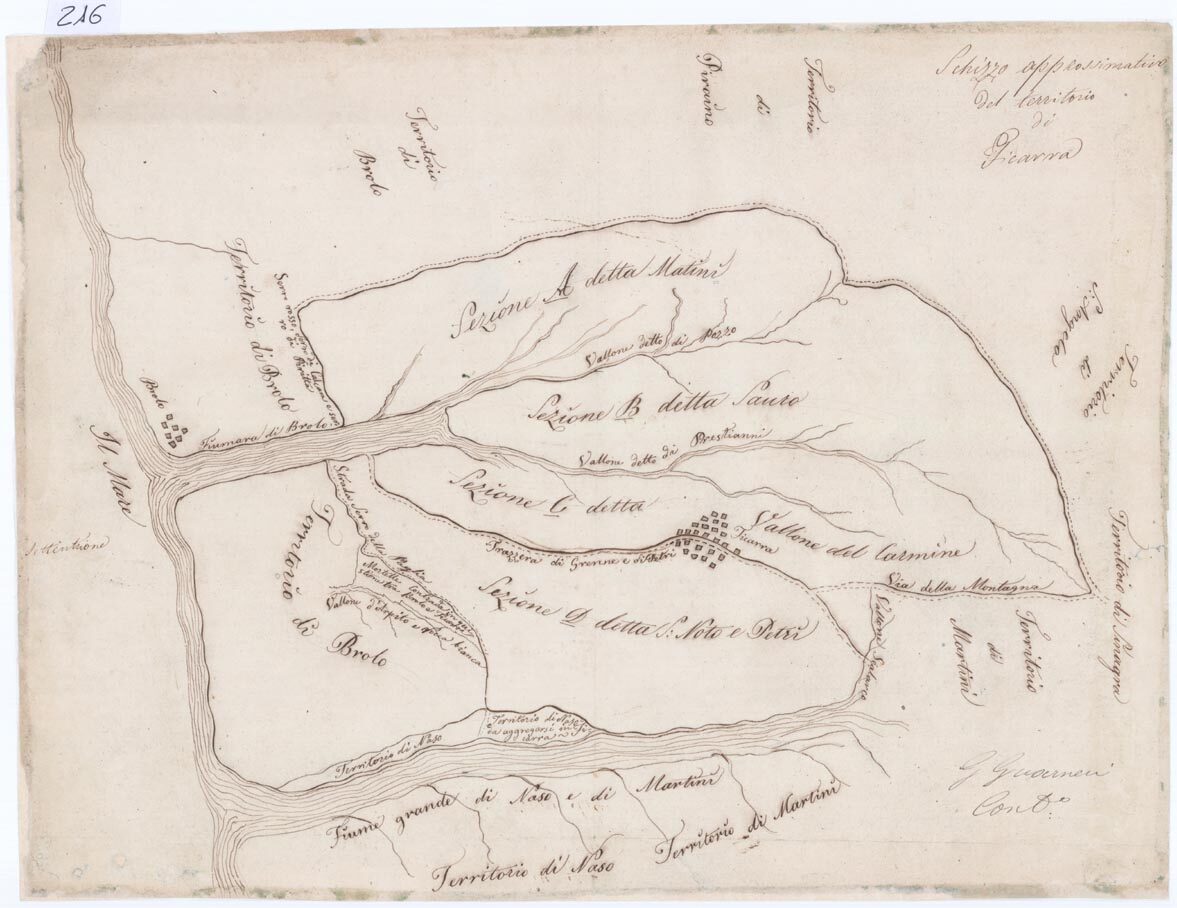 216
Schizzo approssimativo
del territorio
di
Ficarra
Territorio
di
Piraino
Territorio
di
Brolo
Territorio di Brolo
Sezione A detta Matini
Vallone detto di Pozzo
S. Angelo
Territorio di
Brolo
Fiumara di Brolo
Sezione B detta Sauro
Vallone detto di Brestianni
Il Mare
Settentrione
Sezione C detta
Vallone del Carmine
Ficarra
Trazzera di Grenne e
Via della Montagna
Territorio di Sinagra
Territorio
di
Martini
Territorio di
Brolo
Strada Serro della
Vallone
bianca
Sezione D detta S. Noto e Petri
Vallone
Territorio di Naso
Territorio di Naso
da aggregarsi in Fi-
carra
Fiume grande di Naso e di Martini
Territorio di Martini
Territorio di Naso
G Guarneri
Cont.o